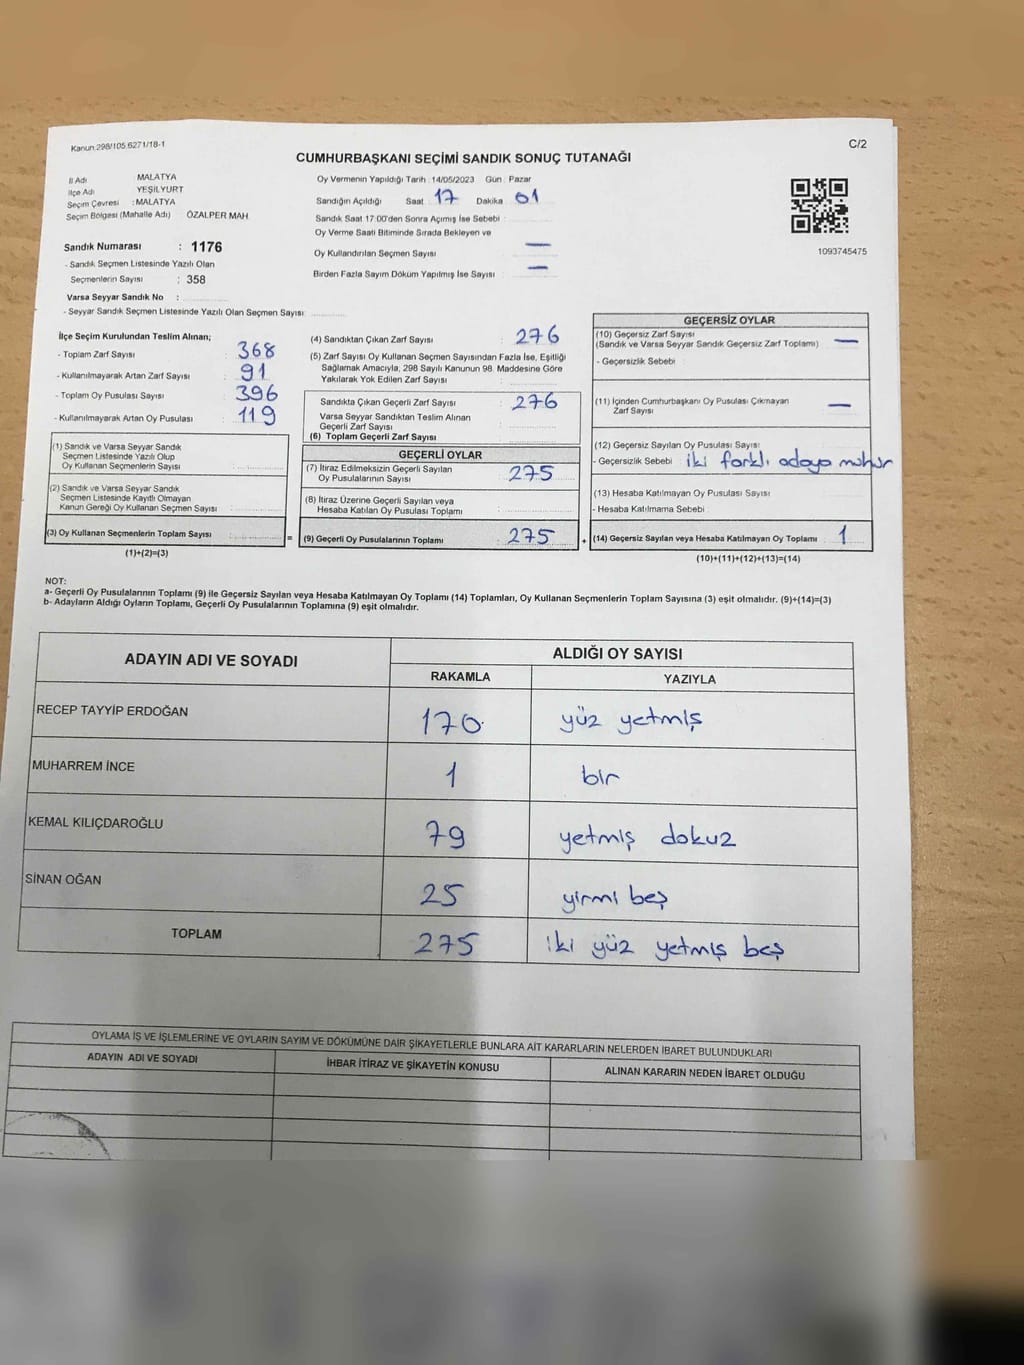 Kanun:298/105,6271/18-1
C/2
CUMHURBAŞKANI SEÇİMİ SANDIK SONUÇ TUTANAĞI
İl Adı : MALATYA
İlçe Adı YEŞİLYURT
Seçim Çevresi : MALATYA
Seçim Bölgesi (Mahalle Adı) ÖZALPER MAH.
Sandık Numarası : 1176
- Sandık Seçmen Listesinde Yazılı Olan
Seçmenlerin Sayısı : 358
Varsa Seyyar Sandık No :
- Seyyar Sandık Seçmen Listesinde Yazılı Olan Seçmen Sayısı
Oy Vermenin Yapıldığı Tarih :14/05/2023 Gün : Pazar
Sandığın Açıldığı Saat 17 Dakika 01
Sandık Saat 17:00'den Sonra Açımış İse Sebebi :
Oy Verme Saati Bitiminde Sırada Bekleyen ve
Oy Kullandırılan Seçmen Sayısı —
Birden Fazla Sayım Döküm Yapılmış İse Sayısı : —
1093745475
İlçe Seçim Kurulundan Teslim Alınan;
- Toplam Zarf Sayısı : 368
- Kullanılmayarak Artan Zarf Sayısı : 91
- Toplam Oy Pusulası Sayısı : 396
- Kullanılmayarak Artan Oy Pusulası : 119
(1) Sandık ve Varsa Seyyar Sandık
Seçmen Listesinde Yazılı Olup
Oy Kullanan Seçmenlerin Sayısı
(2) Sandık ve Varsa Seyyar Sandık
Seçmen Listesinde Kayıtlı Olmayan
Kanun Gereği Oy Kullanan Seçmen Sayısı
(3) Oy Kullanan Seçmenlerin Toplam Sayısı
(1)+(2)=(3)
=
(4) Sandıktan Çıkan Zarf Sayısı : 276
(5) Zarf Sayısı Oy Kullanan Seçmen Sayısından Fazla İse, Eşitliği
Sağlamak Amacıyla, 298 Sayılı Kanunun 98. Maddesine Göre
Yakılarak Yok Edilen Zarf Sayısı
Sandıkta Çıkan Geçerli Zarf Sayısı : 276
Varsa Seyyar Sandıktan Teslim Alınan
Geçerli Zarf Sayısı
(6) Toplam Geçerli Zarf Sayısı
GEÇERLİ OYLAR
(7) İtiraz Edilmeksizin Geçerli Sayılan
Oy Pusulalarının Sayısı 275
(8) İtiraz Üzerine Geçerli Sayılan veya
Hesaba Katılan Oy Pusulası Toplamı
(9) Geçerli Oy Pusulalarının Toplamı 275
+
GEÇERSİZ OYLAR
(10) Geçersiz Zarf Sayısı
(Sandık ve Varsa Seyyar Sandık Geçersiz Zarf Toplamı) : —
- Geçersizlik Sebebi :
(11) İçinden Cumhurbaşkanı Oy Pusulası Çıkmayan
Zarf Sayısı —
(12) Geçersiz Sayılan Oy Pusulası Sayısı :
- Geçersizlik Sebebi iki farklı adaya mühür
(13) Hesaba Katılmayan Oy Pusulası Sayısı
- Hesaba Katılmama Sebebi :
(14) Geçersiz Sayılan veya Hesaba Katılmayan Oy Toplamı 1
(10)+(11)+(12)+(13)=(14)
NOT:
a- Geçerli Oy Pusulalarının Toplamı (9) ile Geçersiz Sayılan veya Hesaba Katılmayan Oy Toplamı (14) Toplamları, Oy Kullanan Seçmenlerin Toplam Sayısına (3) eşit olmalıdır. (9)+(14)=(3)
b- Adayların Aldığı Oyların Toplamı, Geçerli Oy Pusulalarının Toplamına (9) eşit olmalıdır.
ADAYIN ADI VE SOYADI ALDIĞI OY SAYISI
RAKAMLA YAZIYLA
RECEP TAYYİP ERDOĞAN 170 yüz yetmiş
MUHARREM İNCE 1 bir
KEMAL KILIÇDAROĞLU 79 yetmiş dokuz
SİNAN OĞAN 25 yirmi beş
TOPLAM 275 iki yüz yetmiş beş
OYLAMA İŞ VE İŞLEMLERİNE VE OYLARIN SAYIM VE DÖKÜMÜNE DAİR ŞİKAYETLERLE BUNLARA AİT KARARLARIN NELERDEN İBARET BULUNDUKLARI
ADAYIN ADI VE SOYADI İHBAR İTİRAZ VE ŞİKAYETİN KONUSU ALINAN KARARIN NEDEN İBARET OLDUĞU